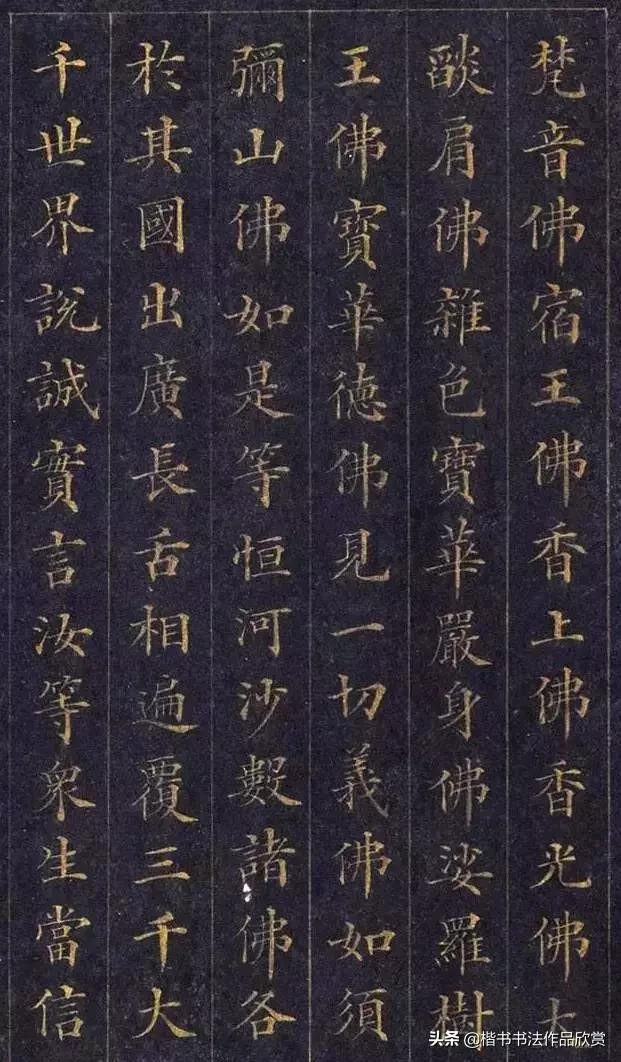 梵音佛宿王佛香上佛香光佛大
燄肩佛雜色寶華嚴身佛娑羅樹
王佛寶華德佛見一切義佛如須
彌山佛如是等恒河沙數諸佛各
於其國出廣長舌相遍覆三千大
千世界說誠實言汝等衆生當信
头条 @楷书书法作品欣赏